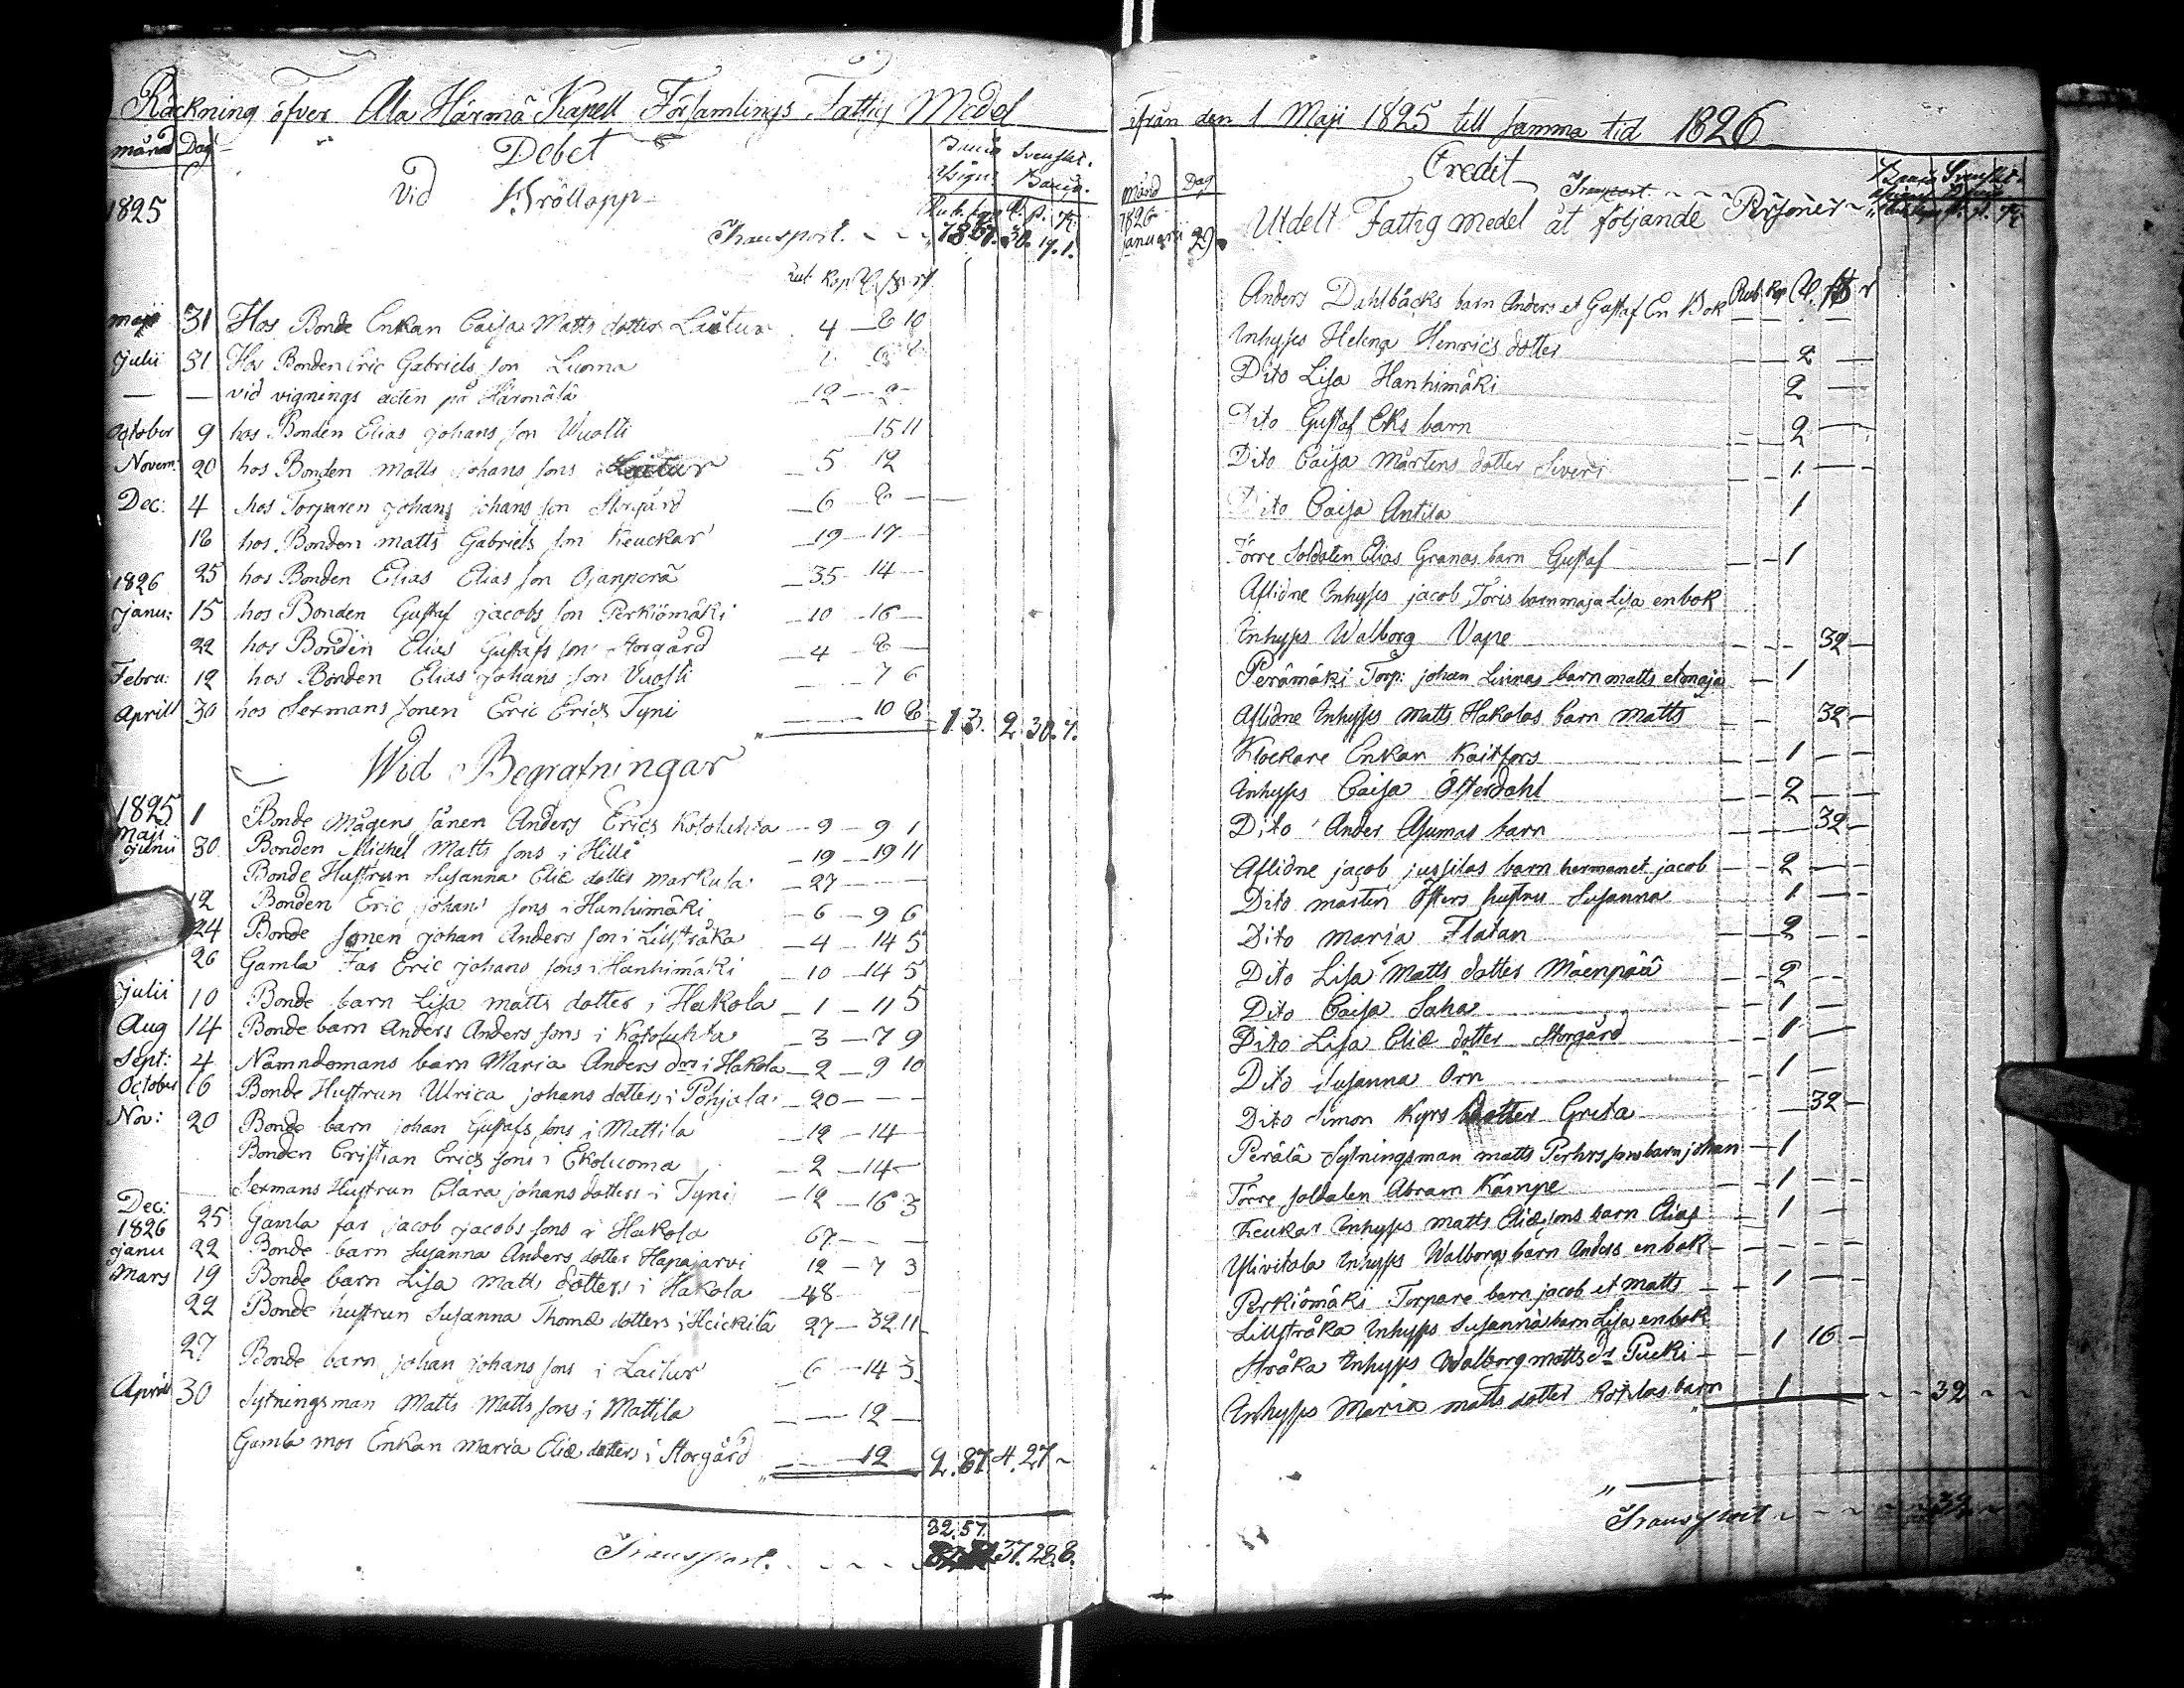 Räckning öfver Ala Härmä Kapell Församlings Fattig Medel
månd Dag Debet Banco Svenskt.
Vid Bröllopp Assign: Banco.
1825 Rub. kop R. s. r.
Transport. 30. 17. 1.
Rub Kop R. s r
maji 31 Hos Bonde Enkan Caisa Matts dotter Laitur 4 — 8 10
julii 31 Hos Bonden Eric Gabriels son Luoma
— — vid vignings acten på Härmälä 12 — 2 —
October 9 hos Bonden Elias johans son Wuolti 15 11
Novem: 20 hos Bonden Matts johans sons Laitur 5 12
Dec: 4 hos Torparen johans johans son Storgård — 6 — 8 —
18 hos Bonden matts Gabriels son Keuckar — 19 — 17 —
1826 25 hos Bonden Elias Elias son Ojanperä — 35 — 14 —
janu: 15 hos Bonden Gustaf jacobs son Perkiömäki — 10 — 16 —
22 hos Bonden Elias Gustafs son Storgård — 4 — 8 —
Febru: 12 hos Bonden Elias johans son Vuolti — 7 6
April 30 hos Sexmans sonen Eric Erics Tyni — 10 8 — 1 13. 2. 30. 7.
Wid Begrafningar
1825 maji 1 Bonde Mågens sånen Anders Erics Kotoluhta — 9 — 9 1
junii 30 Bonden Michel Matts sons i Hilli — 19 — 19 11
Bonde Hustrun Susanna Eliæ dotter markula — 27 — —
12 Bonden Eric johans sons i Hanhimäki — 6 — 9 6
24 Bonde sonen johan Anders son i Lillstråka — 4 — 14 5
26 Gamla Far Eric johans sons i Hanhimäki — 10 — 14 5
julii 10 Bonde barn Lisa matts dotter i Hakola — 1 — 11 5
Aug 14 Bonde barn Anders Anders sons i Kotoluhta — 3 — 7 9
Sept: 4 Nämndemans barn Maria Anders drs i Hakola — 2 — 9 10
October 16 Bonde Hustrun Ulrica johans dotters i Pohjala — 20 — — —
Nov: 20 Bonde barn johan Gustafs sons i Mattila — 12 — 14 —
Bonden Cristian Erics sons i Ekoluoma — 2 — 14 —
Sexmans Hustrun Clara johans dotters i Tyni — 12 — 16 3
Dec: 25 Gamla far jacob jacobs sons i Hakola 67 — — —
1826 janu 22 Bonde barn Susanna Anders dotter Hapajarvi 12 — 7 3
Mars 19 Bonde barn Lisa matts dotters i Hakola — 48 — —
22 Bonde hustrun Susanna Thomæ dotters i Heickilä 27 — 32 11
27 Bonde barn johan johans sons i Laitur 6 — 14 3
April 30 Sytningsman Matts Matts sons i Mattila — — 12 —
Gamla mor Enkan maria Eliæ dotters i Storgård — — 12 2. 87. 4. 27 ~
82. 57.
Transport. 37. 28. 8.
ifrån den 1 Maji 1825 till samma tid 1826
Credit
Månd Dag Transport. Banco Svenskt.
1826 januarii 29. Utdelt Fattig medel åt följande Personer
Anders Dahlbäcks barn Anders et Gustaf En Bok Rub Kop R. s r
Inhyses Helena Henrics dotter — — 2 —
Dito Lisa Hanhimäki 2 —
Dito Gustaf Eks barn — — 2 —
Dito Caisa Mårtens dotter Siveri — — 1 —
Dito Caisa Antila 1
Förre Soldaten Elias Granas barn Gustaf — 1
Aflidne Inhyses jacob Toris barn maja Lisa en bok
Inhyses Walborg Vape — — — 32 —
Perämäki Torp: johan Linnas barn matts et maja — 1
Aflidne Inhyses matts Hakolas barn Matts — — 32 —
Klockare Enkan Kaitfors — — 1 —
Inhyses Caisa Österdahl — — 2 — —
Dito Ander Asumas barn — — — 32 —
Aflidne jacob jussilas barn herman et jacob — — 2 — —
Dito mårten Östers hustru Susanna — 1 — —
Dito Maria Flatan — — 2 — —
Dito Lisa Matts dotter Mäenpää — — 2 — —
Dito Caisa Saha — — 1 —
Dito Lisa Eliæ dotter Storgård — 1 —
Dito Susanna Örn — 1 — —
Dito Simon Kyrs dotter Greta — 32 —
Perälä Sytningsman matts Perhrs sons barn johan — 1
Förre soldaten Abram Kämpe — 1 — —
Keukar Inhyses matts Eliæ sons barn Elias — 1 —
Ylivitala Inhyses Walborgs barn Anders en bok — — — —
Perkiömäki Torpare barn jacob et matts — — 1 — —
Lillstråka Inhyses Susanna barn Lisa en bok
Stråka Inhyses Walborg matts dr Pucki — — 1 16 —
Inhyses Maria matts dotter barn 1 — — 32 ~ ~
Transport ~ ~ ~ 32 ~ ~